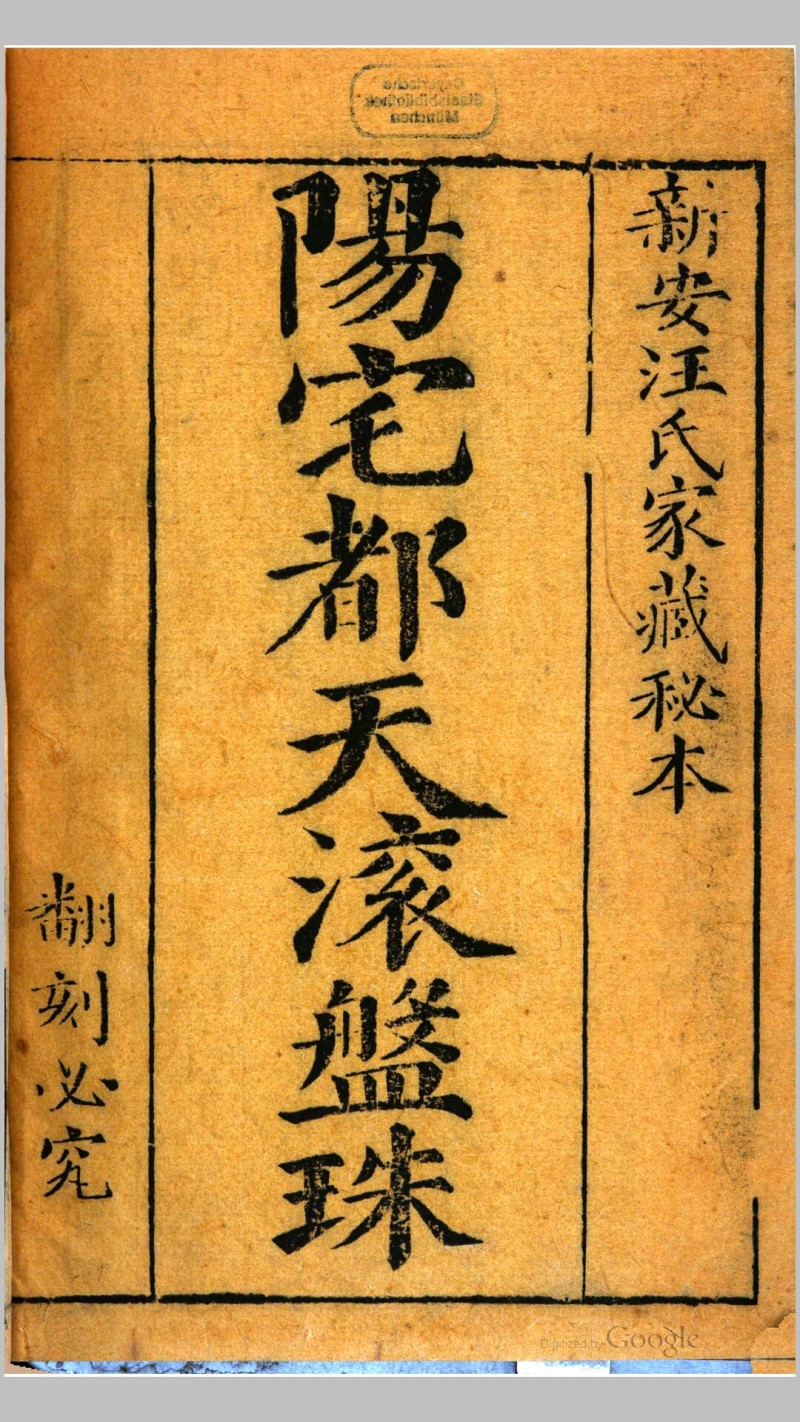 新安汪氏家藏秘本
陽宅都天滚盤珠
翻刻必究
Bayerische
Staatsbibliothek
München
Digitized by Google